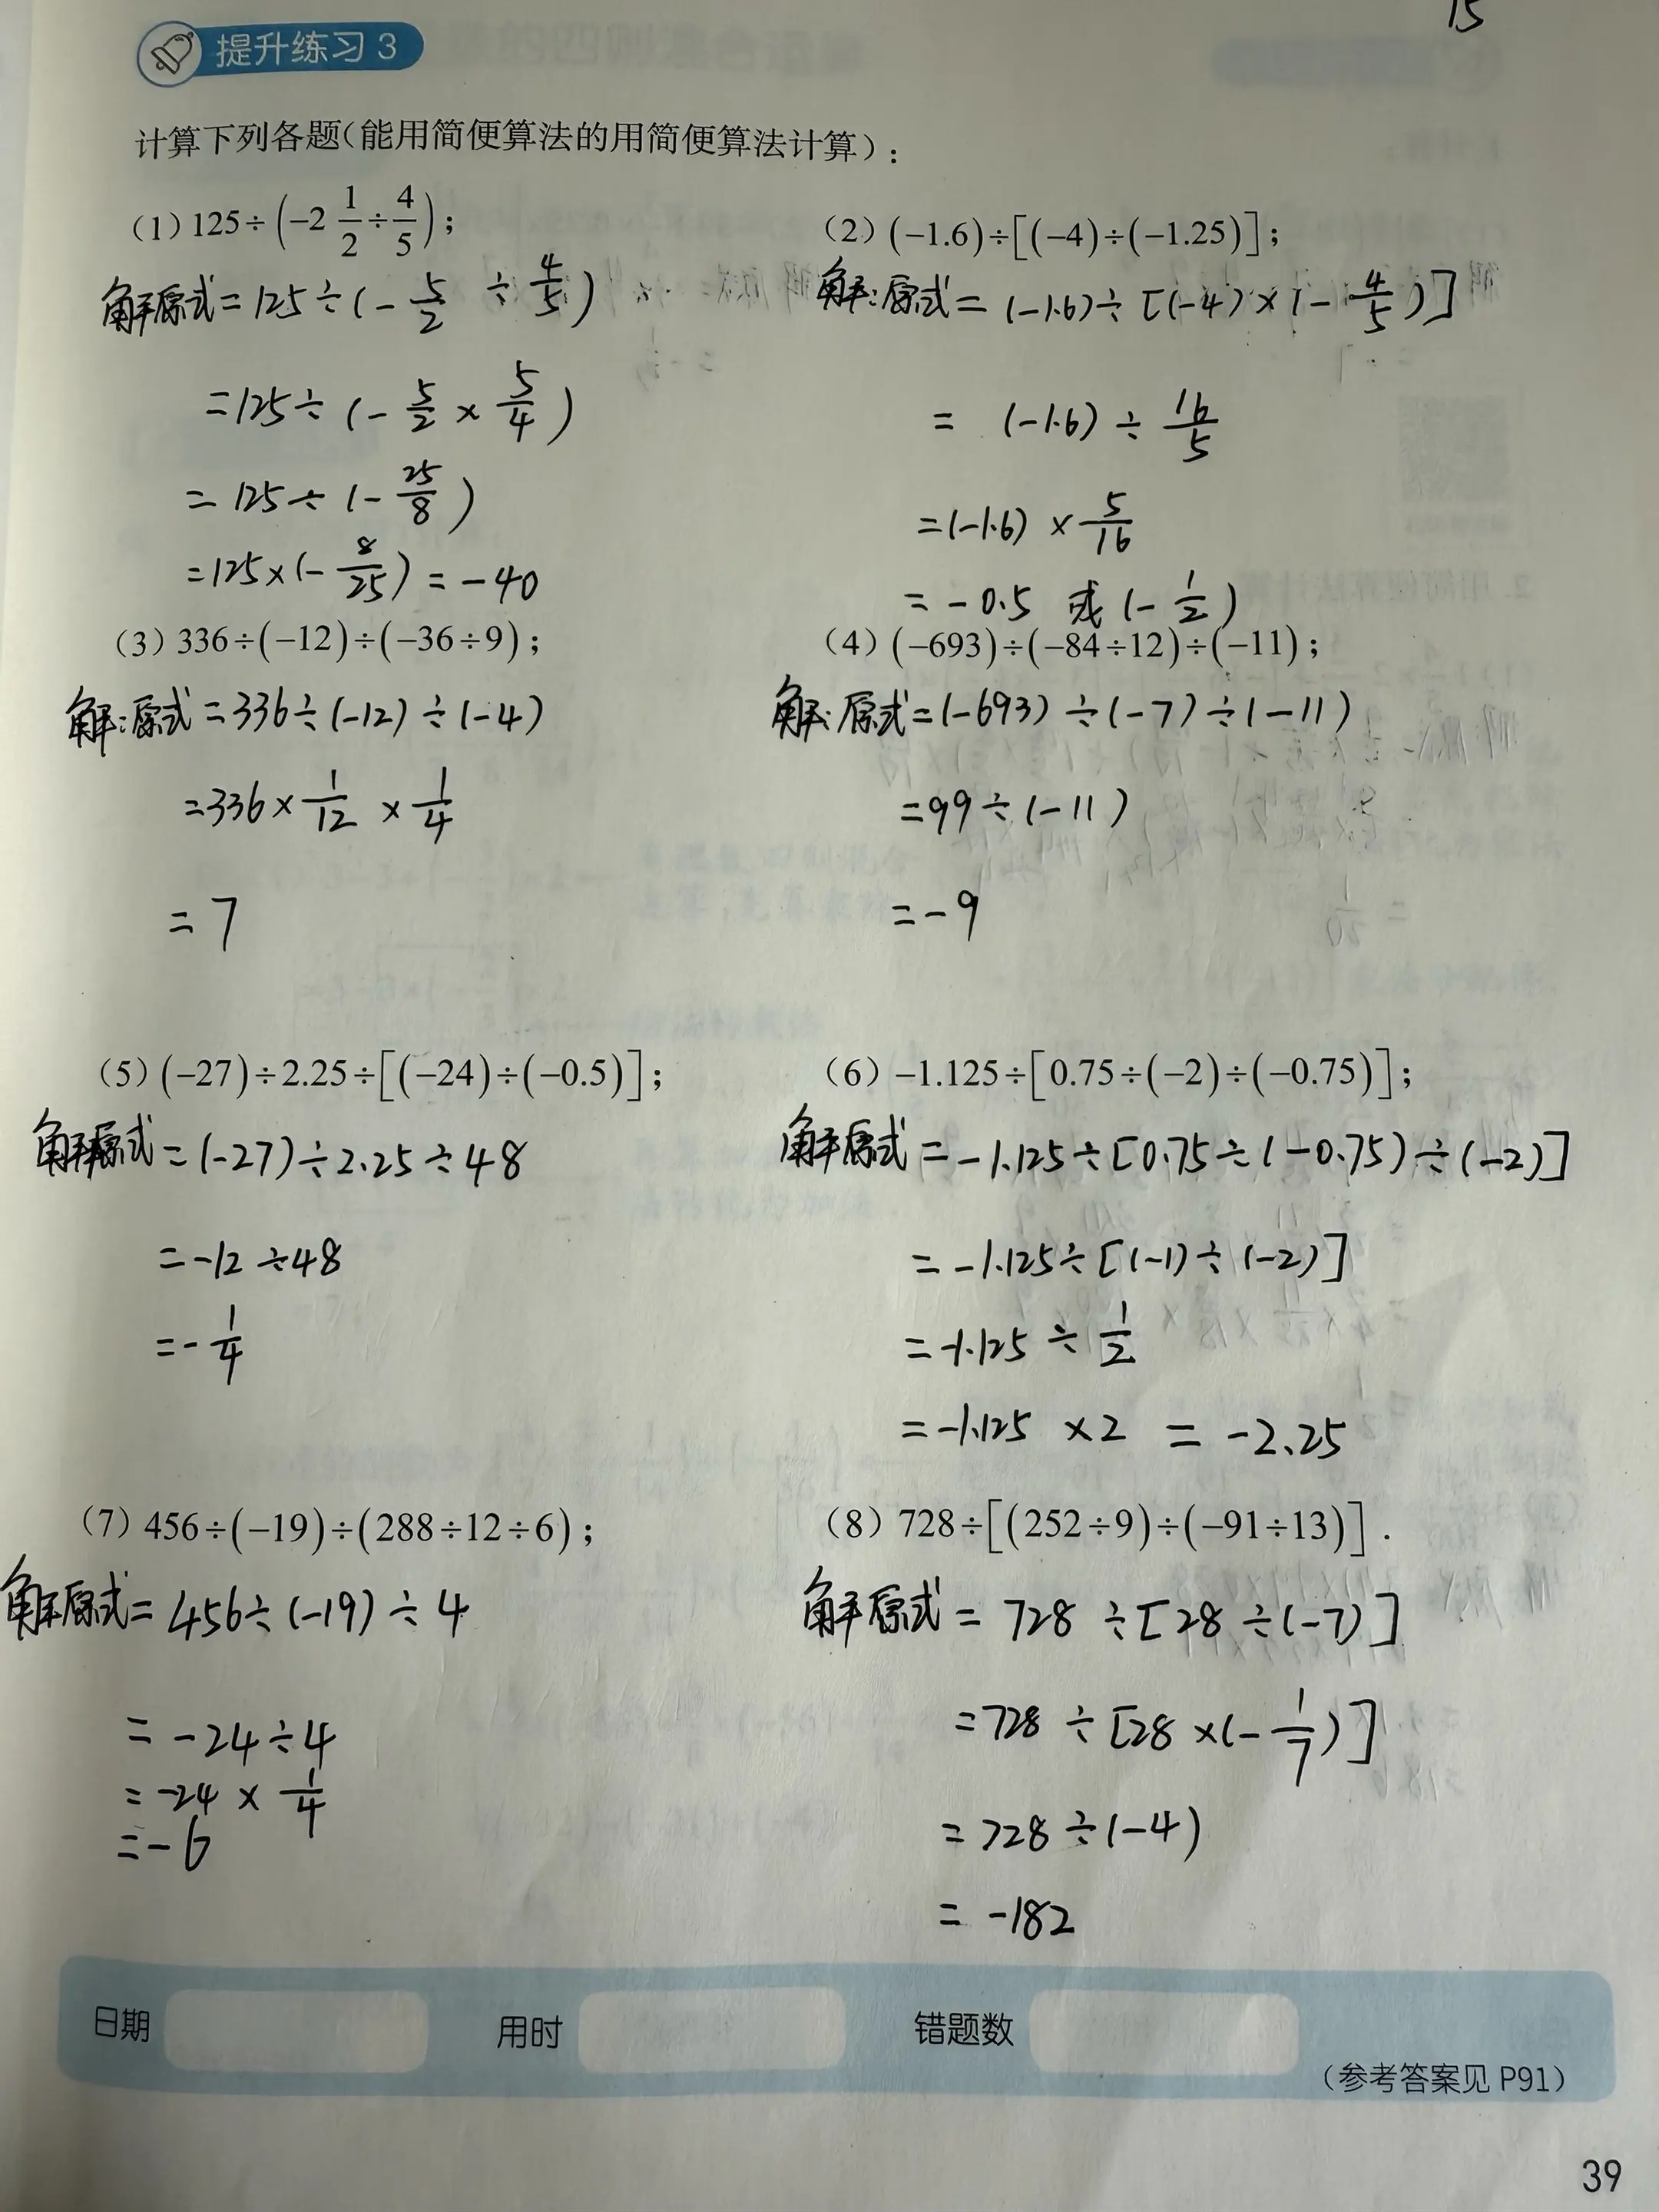 15
提升练习 3
计算下列各题(能用简便算法的用简便算法计算):
(1) 125÷(−2 1/2 ÷ 4/5);
解原式=125÷(− 5/2 ÷ 4/5)
=125÷(− 5/2 × 5/4)
=125÷(− 25/8)
=125×(− 8/25)=−40
(2) (−1.6)÷[(−4)÷(−1.25)];
解:原式=(−1.6)÷[(−4)×(− 4/5)]
= (−1.6)÷ 16/5
=(−1.6)× 5/16
=−0.5 或(− 1/2)
(3) 336÷(−12)÷(−36÷9);
解:原式=336÷(−12)÷(−4)
=336× 1/12 × 1/4
=7
(4) (−693)÷(−84÷12)÷(−11);
解:原式=(−693)÷(−7)÷(−11)
=99÷(−11)
=−9
(5) (−27)÷2.25÷[(−24)÷(−0.5)];
解原式=(−27)÷2.25÷48
=−12÷48
=− 1/4
(6) −1.125÷[0.75÷(−2)÷(−0.75)];
解原式=−1.125÷[0.75÷(−0.75)÷(−2)]
=−1.125÷[(−1)÷(−2)]
=−1.125÷ 1/2
=−1.125×2=−2.25
(7) 456÷(−19)÷(288÷12÷6);
解原式=456÷(−19)÷4
=−24÷4
=−24× 1/4
=−6
(8) 728÷[(252÷9)÷(−91÷13)].
解原式=728÷[28÷(−7)]
=728÷[28×(− 1/7)]
=728÷(−4)
=−182
日期 用时 错题数
(参考答案见 P91)
39